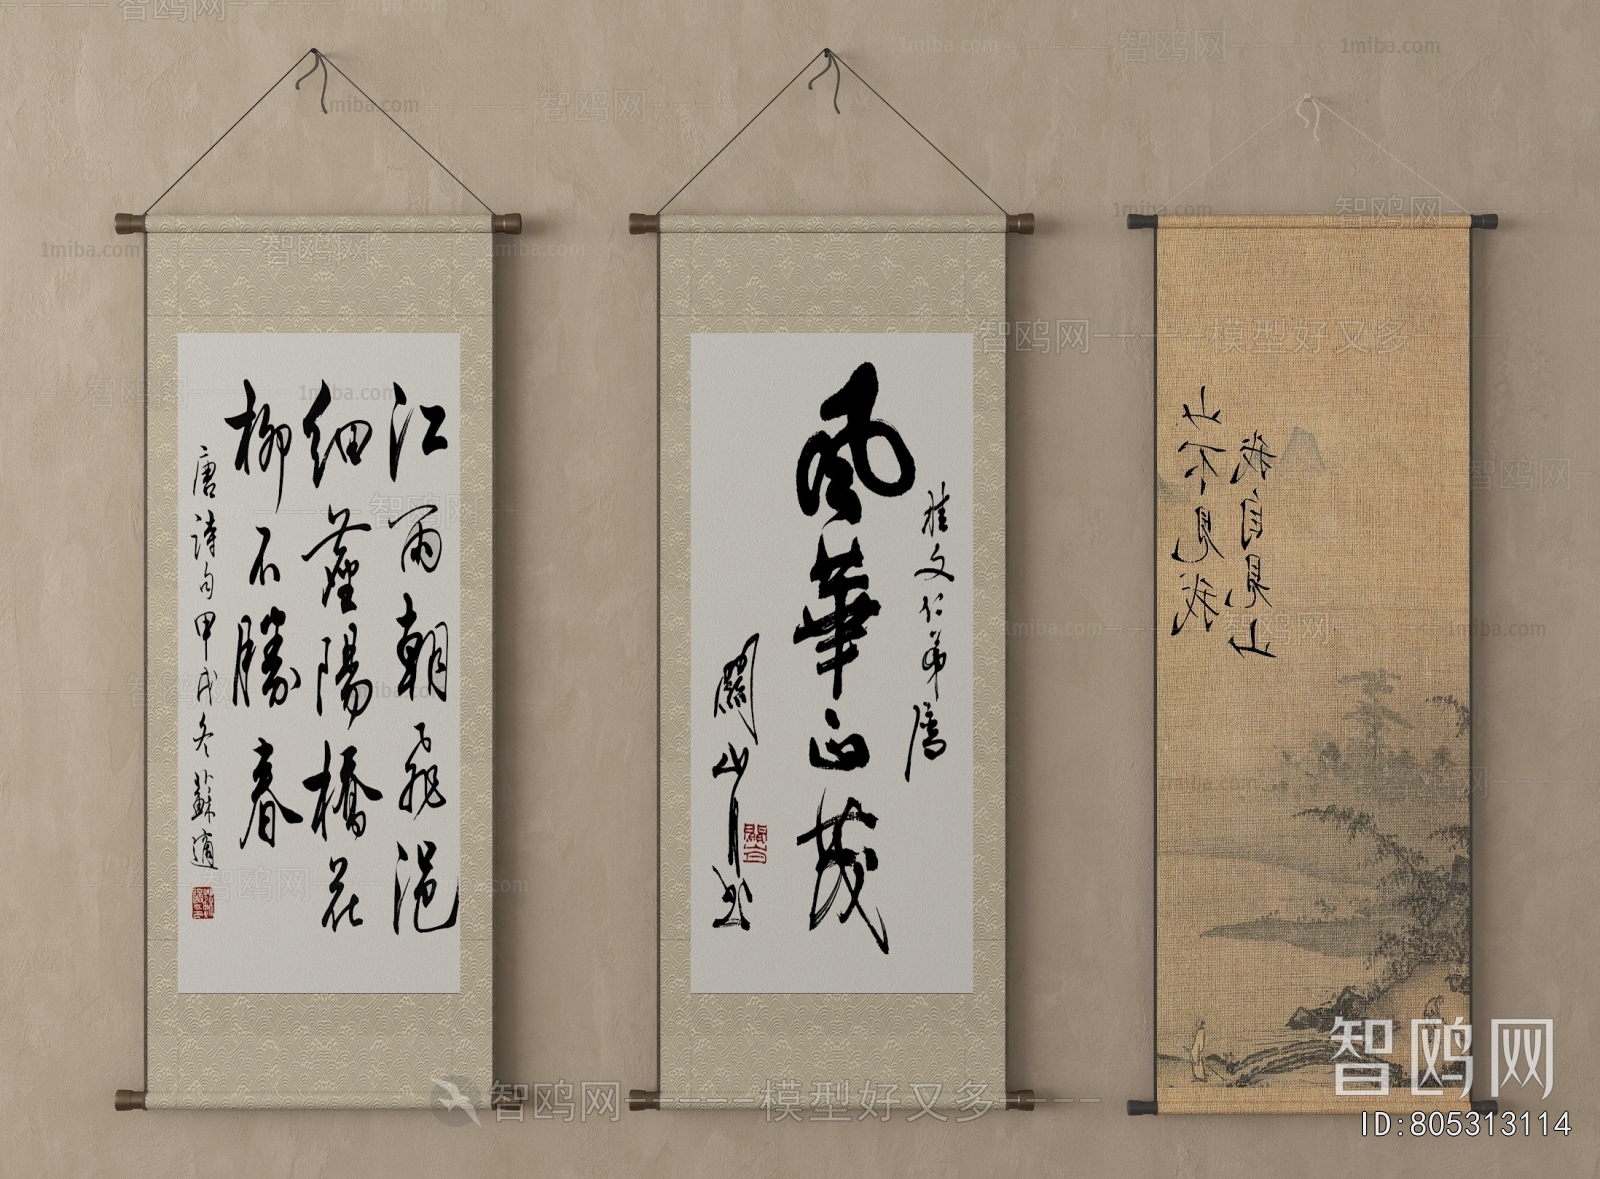 江雨朝飛浥
細塵陽橋花
柳不勝春
唐詩句甲戌冬蘇適
桂文仁弟属
風華正茂
關山月书
山不見我
我自見山
智鸥网
ID:805313114
智鸥网----模型好又多
1miba.com